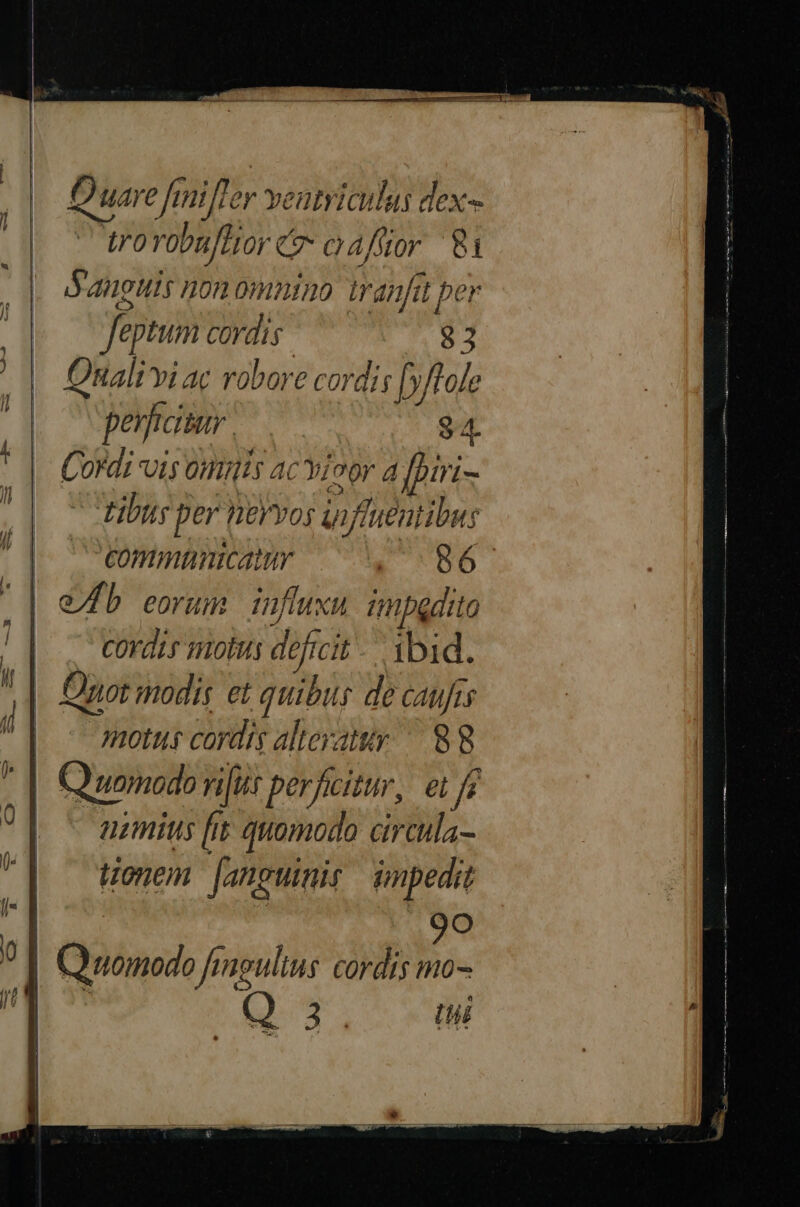 Quare ſiniſter ventriculus dex-
tro robuſtior & craſsior 81
Sanguis non omnino tranſit per
ſeptum cordis 83
Quali vi ac robore cordis ſyſtole
perficitur 84
Cordi vis omnis ac vigor a ſpiri-
tibus per nervos influentibus
communicatur 86
Ab eorum influxu impedito
cordis motus deficit ibid.
Quot modis et quibus de cauſis
motus cordis alteratur 88
Quomodo riſus perficitur, et ſi
nimius ſit quomodo circula-
tionem ſanguinis impedit
90
Quomodo ſingultus cordis mo-
Q 3 tui